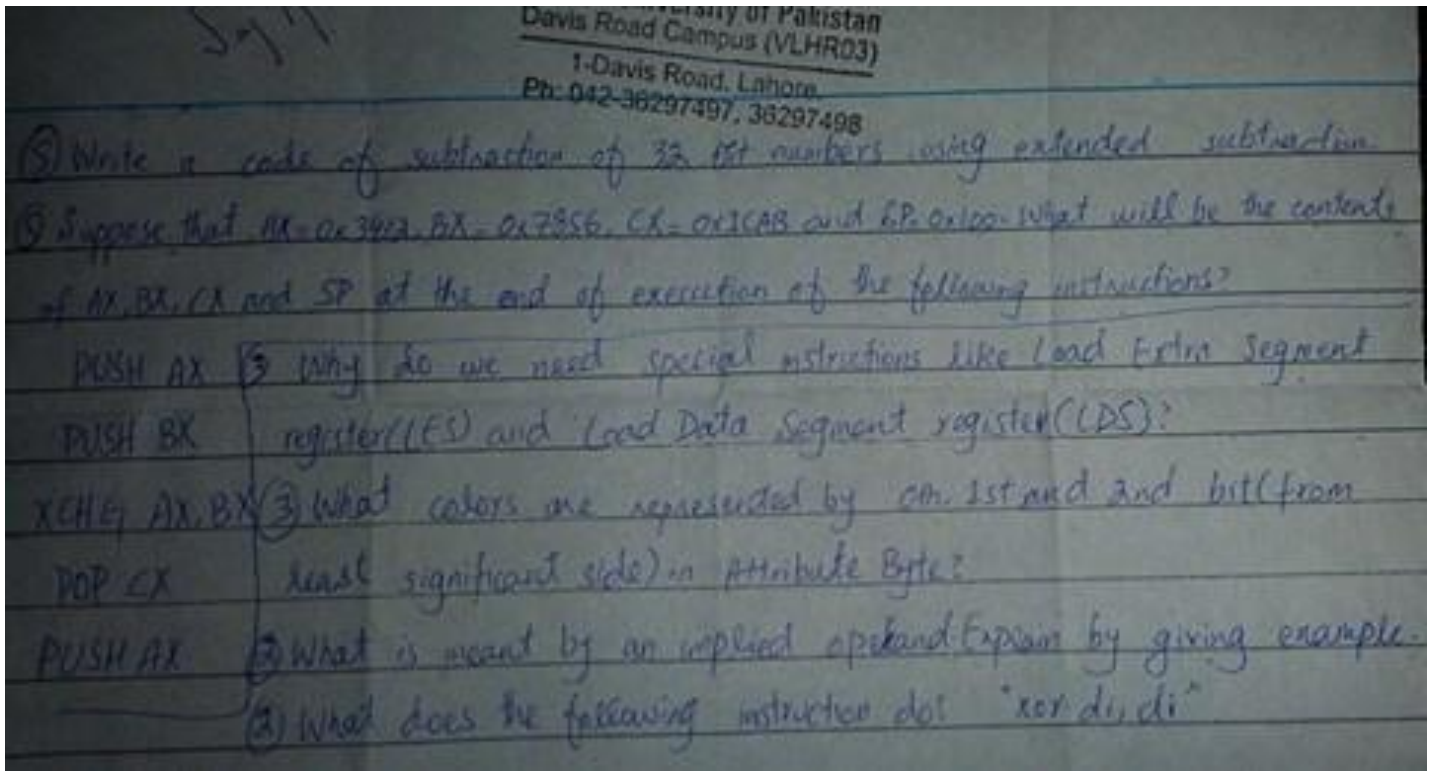 University of Pakistan
Davis Road Campus (VLHR03)
1-Davis Road, Lahore.
Ph: 042-36297497, 36297498
(5) Write a code of subtraction of 32 bit numbers using extended subtraction.
Suppose that AX= BX= 0x7856, CX= 0x1CAB and SP= 0x100. What will be the contents
of AX, BX, CX and SP at the end of execution of the following instructions?
PUSH AX 3 Why do we need special instructions like Load Extra Segment
PUSH BX register(LES) and Load Data Segment register(LDS)?
XCHG AX, BX (3) What colors are represented by 1st and 2nd bit(from
POP CX least significant side) in Attribute Byte?
PUSH AX (2) What is meant by an implied operand. Explain by giving example.
(2) What does the following instruction do? "xor di, di"